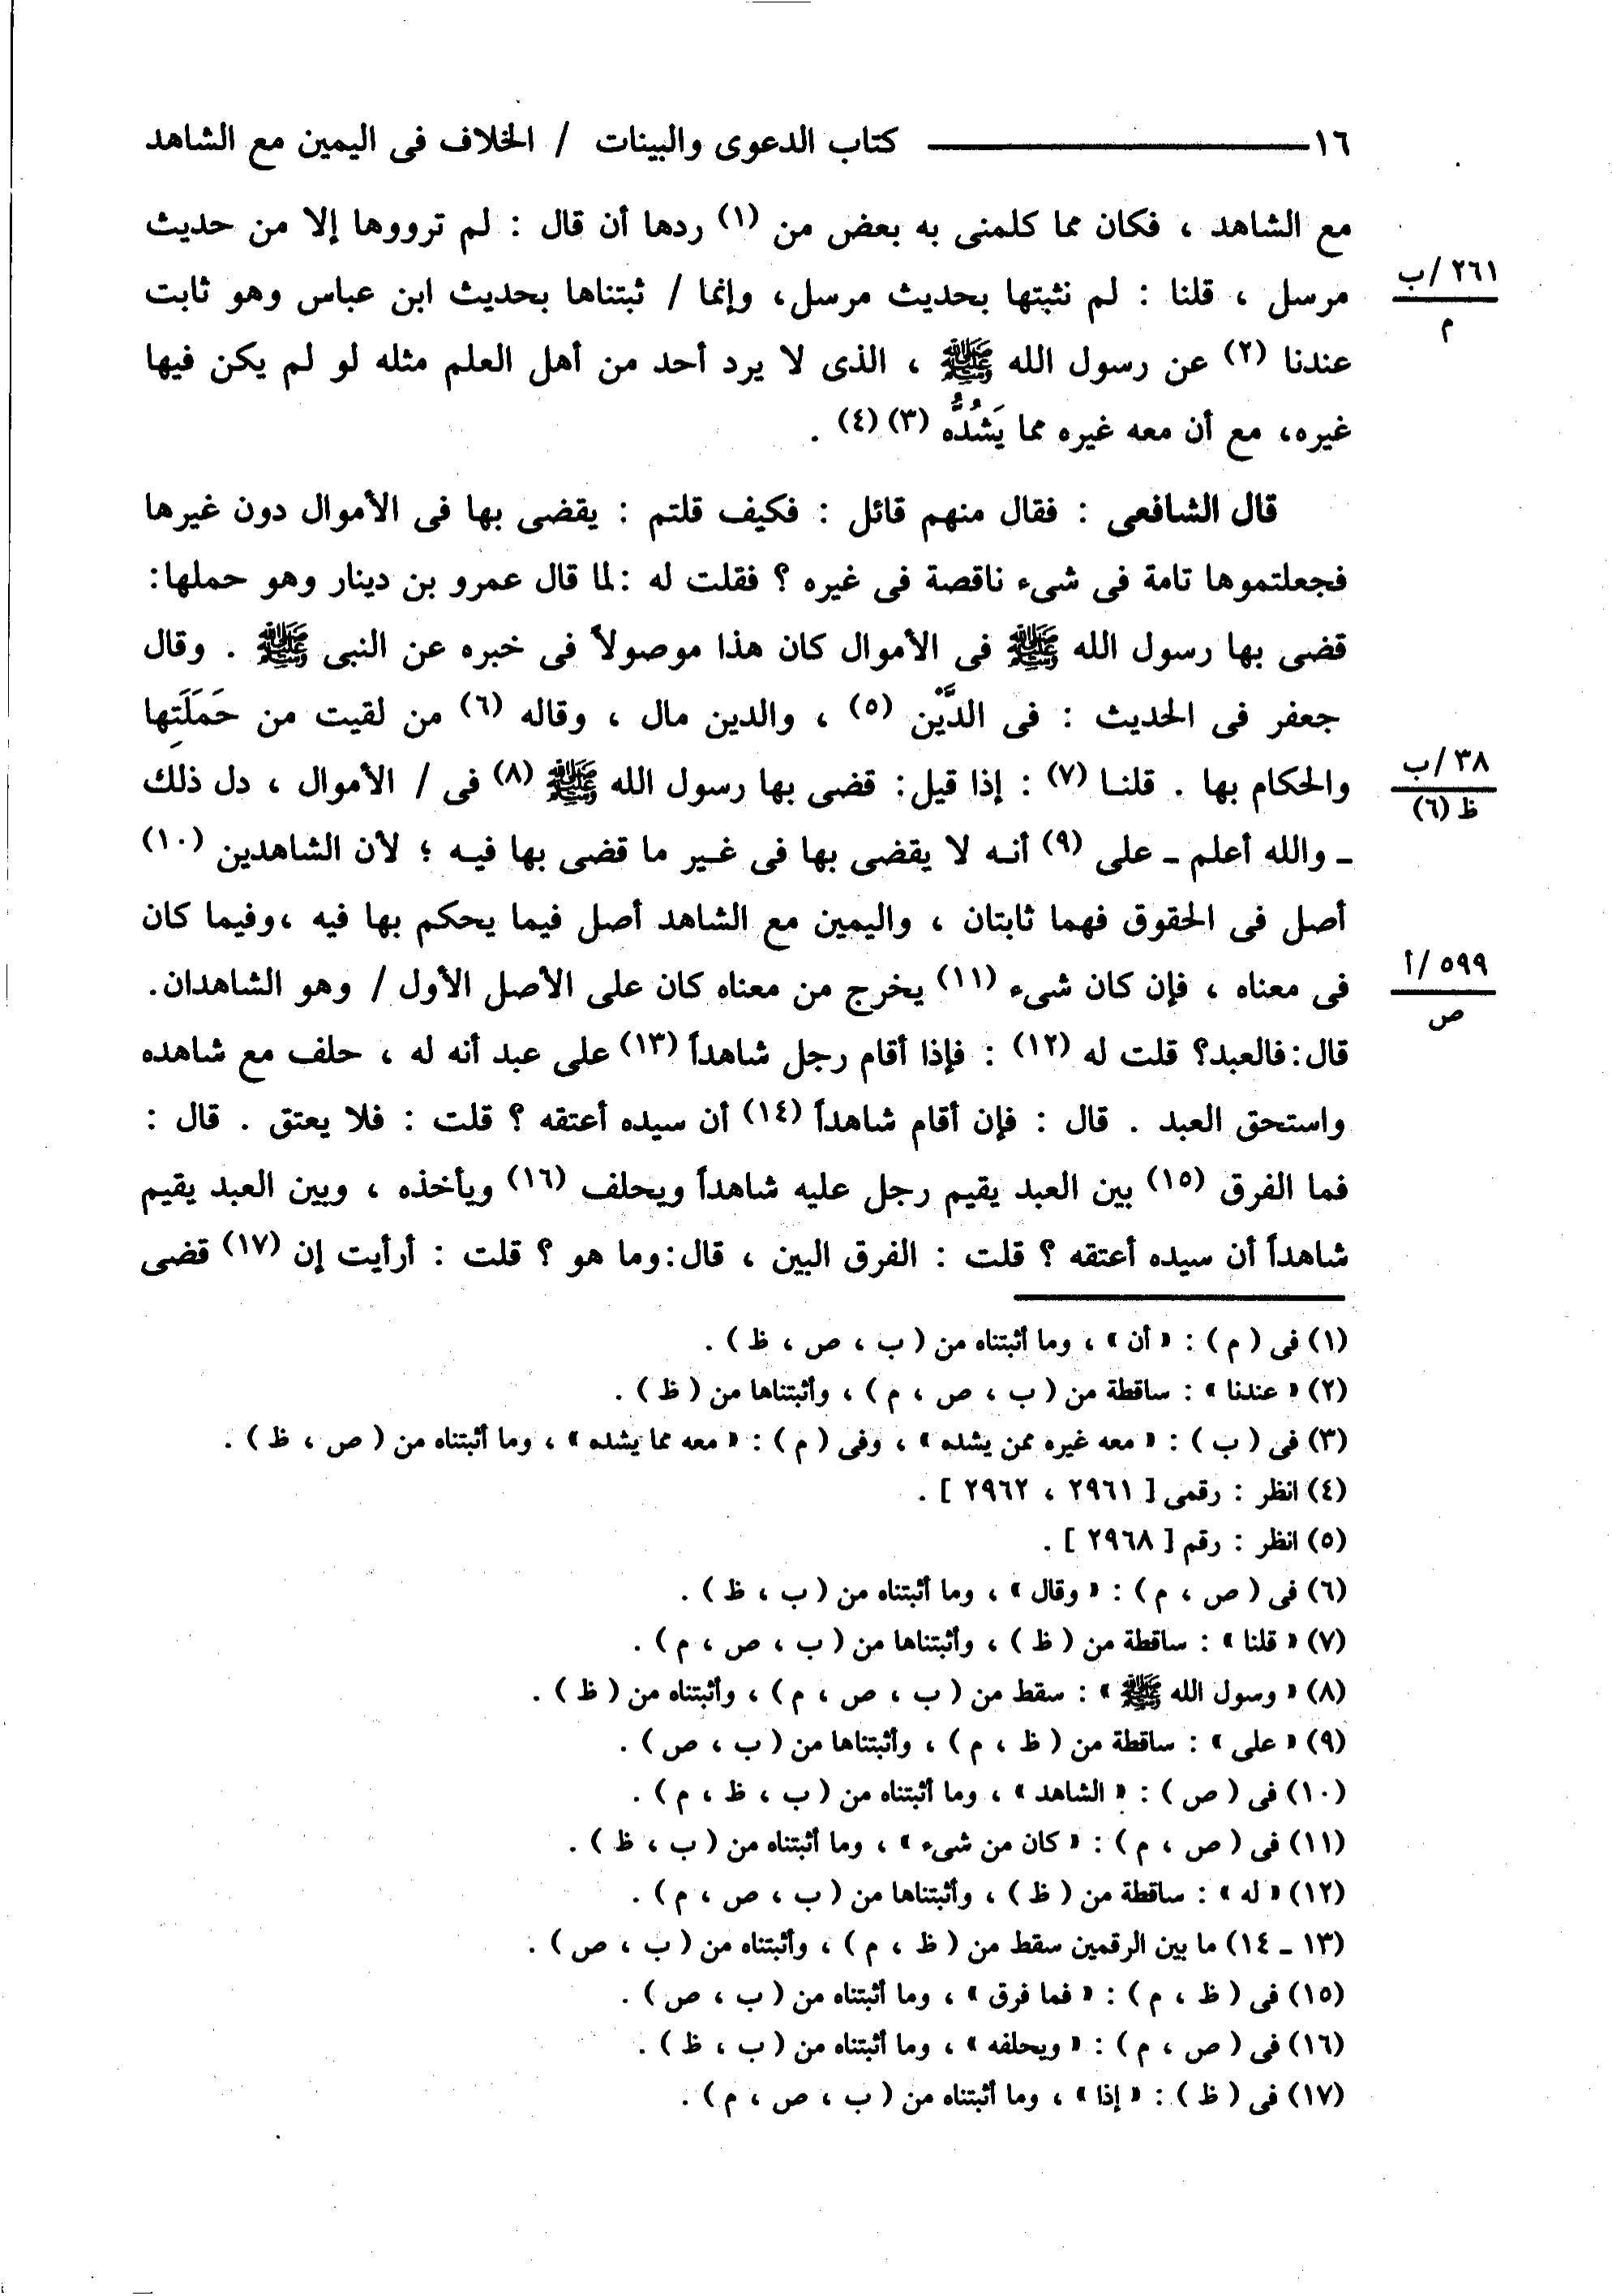 ١٦ ــــــــــــــــ كتاب الدعوى والبينات / الخلاف فى اليمين مع الشاهد
مع الشاهد ، فكان مما كلمنى به بعض من (١) ردها أن قال : لم ترووها إلا من حديث
٢٦١/ب
م
مرسل ، قلنا : لم نثبتها بحديث مرسل، وإنما / ثبتناها بحديث ابن عباس وهو ثابت
عندنا (٢) عن رسول الله ﷺ ، الذى لا يرد أحد من أهل العلم مثله لو لم يكن فيها
غيره، مع أن معه غيره مما يَشُدُّه (٣) (٤) .
قال الشافعى : فقال منهم قائل : فكيف قلتم : يقضى بها فى الأموال دون غيرها
فجعلتموها تامة فى شىء ناقصة فى غيره ؟ فقلت له :لما قال عمرو بن دينار وهو حملها:
قضى بها رسول الله ﷺ فى الأموال كان هذا موصولاً فى خبره عن النبى ﷺ . وقال
جعفر فى الحديث : فى الدَّيْن (٥) ، والدين مال ، وقاله (٦) من لقيت من حَمَلَتِها
٣٨/ب
ظ (٦)
والحكام بها . قلنـا (٧) : إذا قيل: قضى بها رسول الله ﷺ (٨) فى / الأموال ، دل ذلك
ـ والله أعلم ـ على (٩) أنـه لا يقضى بها فى غـير ما قضى بها فيـه ؛ لأن الشاهدين (١٠)
أصل فى الحقوق فهما ثابتان ، واليمين مع الشاهد أصل فيما يحكم بها فيه ،وفيما كان
٥٩٩/أ
ص
فى معناه ، فإن كان شىء (١١) يخرج من معناه كان على الأصل الأول / وهو الشاهدان.
قال:فالعبد؟ قلت له (١٢) : فإذا أقام رجل شاهداً (١٣) على عبد أنه له ، حلف مع شاهده
واستحق العبد . قال : فإن أقام شاهداً (١٤) أن سيده أعتقه ؟ قلت : فلا يعتق . قال :
فما الفرق (١٥) بين العبد يقيم رجل عليه شاهداً ويحلف (١٦) ويأخذه ، وبين العبد يقيم
شاهداً أن سيده أعتقه ؟ قلت : الفرق البين ، قال:وما هو ؟ قلت : أرأيت إن (١٧) قضى
(١) فى ( م ) : « أن » ، وما أثبتناه من ( ب ، ص ، ظ ) .
(٢) « عندنا » : ساقطة من ( ب ، ص ، م ) ، وأثبتناها من ( ظ ) .
(٣) فى ( ب ) : « معه غيره ممن يشده » ، وفى ( م ) : « معه مما يشده » ، وما أثبتناه من ( ص ، ظ ) .
(٤) انظر : رقمى [ ٢٩٦١ ، ٢٩٦٢ ] .
(٥) انظر : رقم [ ٢٩٦٨ ] .
(٦) فى ( ص ، م ) : « وقال » ، وما أثبتناه من ( ب ، ظ ) .
(٧) « قلنا » : ساقطة من ( ظ ) ، وأثبتناها من ( ب ، ص ، م ) .
(٨) « رسول الله ﷺ » : سقط من ( ب ، ص ، م ) ، وأثبتناه من ( ظ ) .
(٩) « على » : ساقطة من ( ظ ، م ) ، وأثبتناها من ( ب ، ص ) .
(١٠) فى ( ص ) : « الشاهد » ، وما أثبتناه من ( ب ، ظ ، م ) .
(١١) فى ( ص ، م ) : « كان من شىء » ، وما أثبتناه من ( ب ، ظ ) .
(١٢) « له » : ساقطة من ( ظ ) ، وأثبتناها من ( ب ، ص ، م ) .
(١٣ ـ ١٤) ما بين الرقمين سقط من ( ظ ، م ) ، وأثبتناه من ( ب ، ص ) .
(١٥) فى ( ظ ، م ) : « فما فرق » ، وما أثبتناه من ( ب ، ص ) .
(١٦) فى ( ص ، م ) : « ويحلفه » ، وما أثبتناه من ( ب ، ظ ) .
(١٧) فى ( ظ ) : « إذا » ، وما أثبتناه من ( ب ، ص ، م ) .